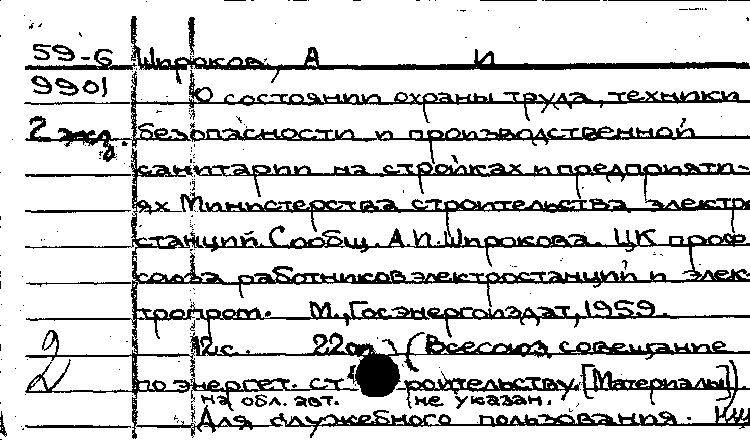 59-6 Широков, А И
9901
О состоянии охраны труда, техники
2 экз. безопасности и производственной
санитарии на стройках и предприяти-
ях Министерства строительства электро
станций. Сообщ. А.И. Широкова. ЦК проф
союза работников электростанций и элек-
тропром. М., Госэнергоиздат, 1959.
12 с. 22 см (Всесоюз. совещание
2 по энергет. ст роительству. [Материалы])
на обл. авт. не указан.
Для служебного пользования.